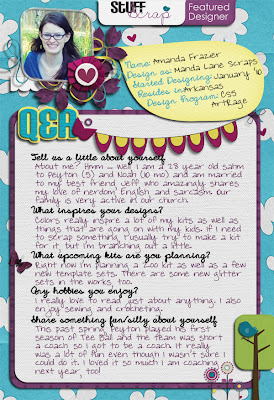 STUFF
Scrap
Featured
Designer
Name: Amanda Frazier
Design as: Manda Lane Scraps
Started Designing: January '10
Resides in: Arkansas
Design Program: CS5
ArtRage
Q&A
Tell us a little about yourself
About me? Hmm ... well I am a 28 year old sahm
to Peyton (5) and Noah (10 mo) and am married
to my best friend Jeff who amazingly shares
my love of nerdom, English and sarcasm. Our
family is very active in our church.
What inspires your designs?
Colors really inspire a lot of my kits as well as
things that are going on with my kids. If I need
to scrap something, I usually try to make a kit
for it, but I'm branching out a little.
What upcoming kits are you planning?
Right now I'm planning a zoo kit as well as a few
new template sets. There are some new glitter
sets in the works, too.
Any hobbies you enjoy?
I really love to read just about anything. I also
enjoy sewing and crocheting.
Share something fun/silly about yourself
This past spring, Peyton played his first
season of Tee Ball and the team was short
a coach so I got to be a coach. It really
was a lot of fun even though I wasn't sure I
could do it. I loved it so much I am coaching
next year, too!